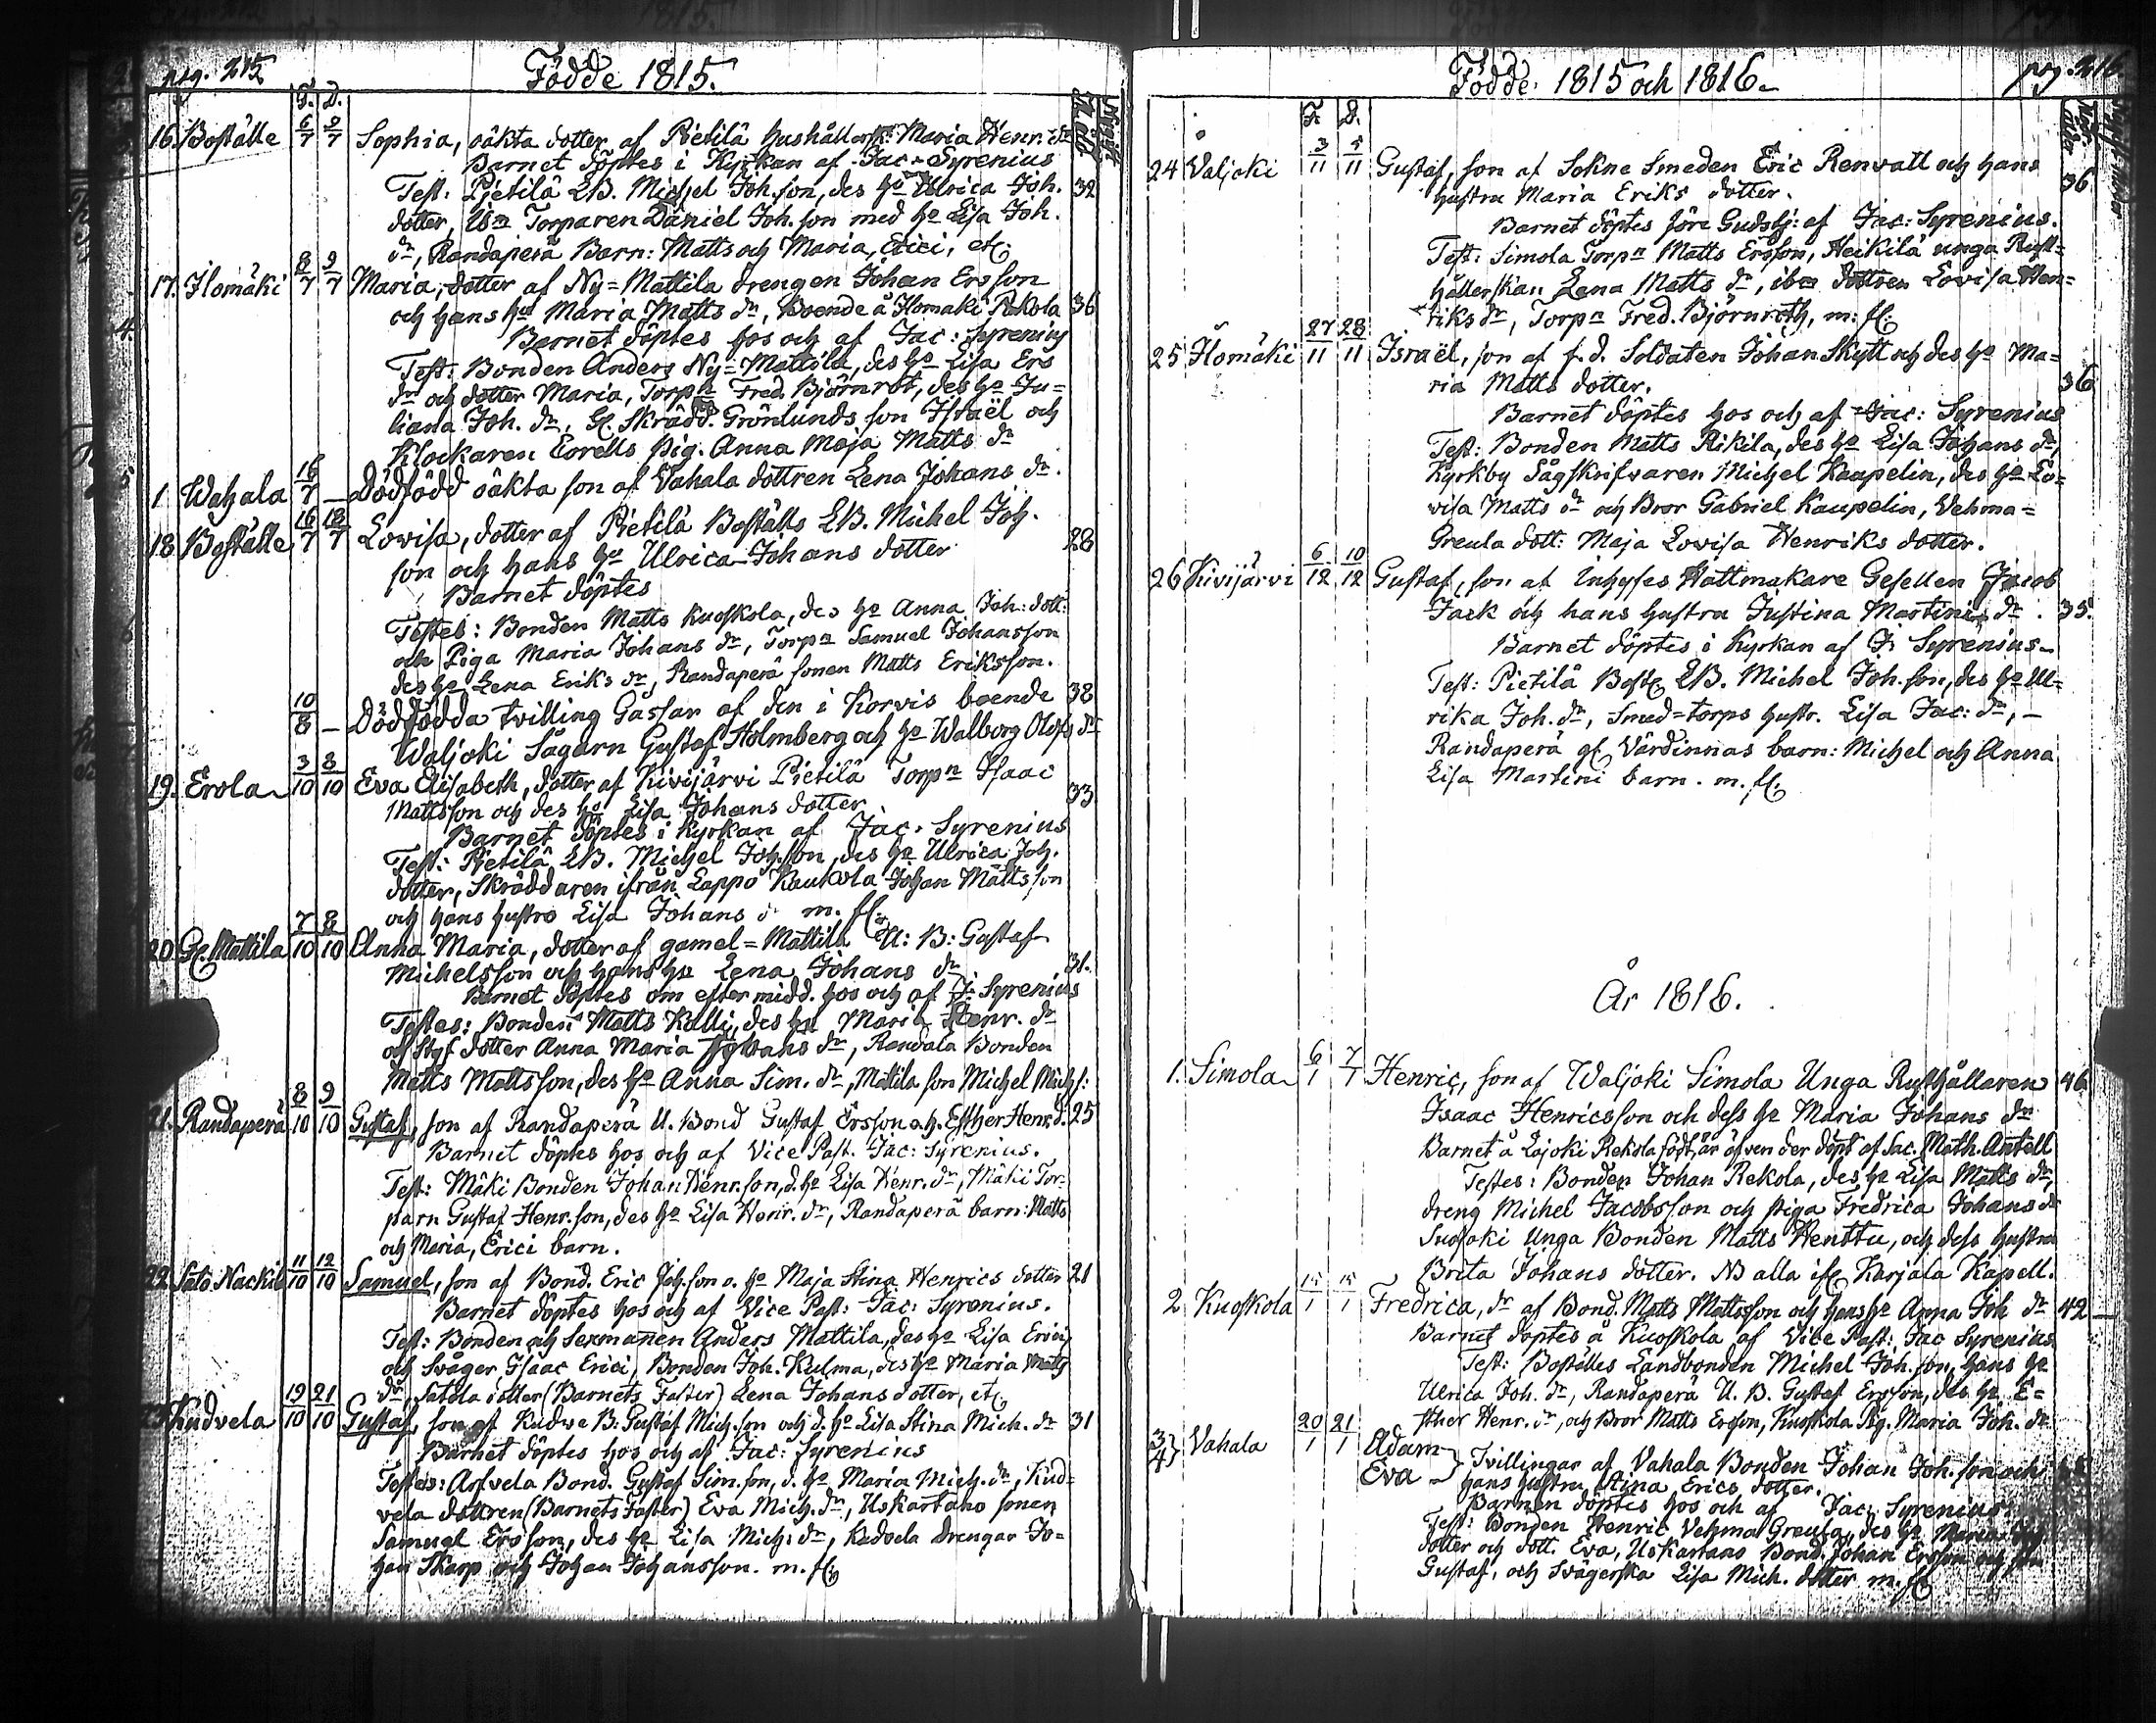 pag. 215
Födde 1815.
F. D.
16. Boställe 6/7 9/7 Sophia, oäkta dotter af Pietilä hushållersk: Maria Henr. dr
Barnet döptes i Kyrkan af Jac: Syrenius
Test: Pietilä LB. Michel Joh.son, des ho Ulrica Joh. 32
dotter, Torparen Daniel Joh.son med ho Lisa Joh.
dr, Randaperä Barn: Matts och Maria, Erici, etc:
17. Ilomäki 8/7 9/7 Maria, dotter af Ny=Mattila drengen Johan Ersson
och hans hu Maria Matts dr, Boende å Ilomäki Rekola 36
Barnet döptes hos och af Jac: Syrenius
Test: Bonden Anders Ny=Mattila, des ho Lisa Ers
dr och dotter Maria, Torpn Fred. Björnrot, des ho Ju=
liana Joh. dr, Sk. Skrädd. Grönlunds son Israël och
Klockaren Eorells pig. Anna Maja Matts dr
1 Wahala 16/7 — Dödfödd oäkta son af Vahala dottren Lena Johans dr.
18 Boställe 16/7 18/7 Lovisa, dotter af Pietilä Boställs LB. Michel Joh. 28
son och hans ho Ulrica Johans dotter
Barnet döptes
Testes: Bonden Matts Kuoskola, des ho Anna Joh: dott:
och Piga Maria Johans dr, Torpn Samuel Johansson
des ho Lena Eriks dr, Randaperä sonen Matts Eriksson.
10/8 — Dödfödda tvilling Gossar af den i Korvis boende 38
Waljoki Sågarn Gustaf Holmberg och ho Walborg Olofs dr
19. Erola 3/10 8/10 Eva Elisabeth, dotter af Kivijärvi Pietilä Torpn Isaac
Mattsson och des ho Lisa Johans dotter 33
Barnet döptes i Kyrkan af Jac. Syrenius
Test: Pietilä LB. Michel Joh.son, des ho Ulrica Joh.
dotter, Skräddaren ifrån Lappo Kaukola Johan Mattsson
och hans hustro Lisa Johans dr m. fl.
20. Gl. Mattila 7/10 8/10 Anna Maria, dotter af gamel=Mattila U: B: Gustaf
Michelsson och hans hu Lena Johans dr 31.
Barnet döptes om eftermidd. hos och af J. Syrenius
Testes: Bonden Matts Kalli, des hu Maria Henr. dr
och Styf dotter Anna Maria Johans dr, Randala Bonden
Matts Mattsson, des ho Anna Sim. dr, Matila son Michel Mich:
21. Randaperä 8/10 9/10 Gustaf, son af Randaperä U. Bond Gustaf Ersson o. h. Esther Henr. d. 25
Barnet döptes hos och af Vice Past. Jac: Syrenius.
Test: Mäki Bonden Johan Henr.son, d. ho Lisa Henr. dr, Mäki Tor-
parn Gustaf Henr.son, des ho Lisa Henr. dr, Randaperä barn: Matts
och Maria, Erici barn.
22. Sato Nackila 11/10 12/10 Samuel, son af Bond. Eric Joh.son o. ho Maja Stina Henrics dotter 21
Barnet döptes hos och af Vice Past: Jac: Syrenius.
Test: Bonden och Sexmannen Anders Mattila, des ho Lisa Erici
och Svåger Isaac Erici, Bonden Joh. Kulma, des ho Maria Matts
dr, Satola dotter (Barnets Faster) Lena Johans dotter, etc
23 Kudvela 19/10 21/10 Gustaf, son af Kudwe B: Gustaf Mich.son och d. ho Lisa Stina Mich. dr 31
Barnet döptes hos och af Jac: Syrenius
Testes: Arfvela Bond. Gustaf Sim.son, d. ho Maria Mich. dr, Kud=
vela dottren (Barnets Faster) Eva Mich. dr, Uskartano sonen
Samuel Ersson, des ho Lisa Mich: dr, Kudvela drengar Jo=
han Skarp och Johan Johansson. m. fl.
Födde 1815 och 1816.
pag. 216
F. D.
24 Valjoki 3/11 5/11 Gustaf, son af Sokne Smeden Eric Renvall och hans
hustru Maria Eriks dotter. 36
Barnet döptes före Gudstj: af Jac: Syrenius.
Test: Simola Torpn Matts Ersson, Heikilä unga Rust=
hållerskan Lena Matts dr, dottren Lovisa Hen=
riks dr, Torpn Fred. Björnroth, m: fl:
25 Ilomäki 27/11 28/11 Israël, son af f. d. Soldaten Johan Skytt och des ho Ma=
ria Matts dotter. 36
Barnet döptes hos och af Jac: Syrenius
Test: Bonden Matts Rikila, des ho Lisa Johans dr,
Kyrkby Sågskrifvaren Michel Kaupelin, des ho Lo=
visa Matts dr och Bror Gabriel Kaupelin, Vehma=
Greula dott: Maja Lovisa Henriks dotter.
26 Kivijärvi 6/12 10/12 Gustaf, son af Inhyses Hattmakare Gesellen Jacob
Jack och hans hustru Justina Martini dr. 35.
Barnet döptes i Kyrkan af J. Syrenius
Test: Pietilä Bost. LB. Michel Joh.son, des ho Ul=
rika Joh. dr, Smed=torps hustr. Lisa Jac: dr, —
Randaperä gl. Värdinnas barn: Michel och Anna
Lisa Martini barn. m. fl.
År 1816.
1. Simola 6/1 7/1 Henric, son af Waljoki Simola Unga Rusthållaren 46
Isaac Henricsson och dess ho Maria Johans dr
Barnet å Lajoki Rekola födt, är äfven der döpt af Sac. Math. Antell
Testes: Bonden Johan Rekola, des ho Lisa Matts dr,
dreng Michel Jacobsson och piga Fredrica Johans dr
Suojoki Unga Bonden Matts Henttu, och dess hustru
Brita Johans dotter. NB alla if. Karjala Kapell.
2 Kuoskola 15/1 15/1 Fredrica, dr af Bond. Matts Mattsson och hans ho Anna Joh dr 42 —
Barnet döptes å Kuoskola af Vice Past: Jac Syrenius
Test: Boställes Landbonden Michel Joh.son, hans ho
Ulrica Joh. dr, Randaperä U. B. Gustaf Ersson, des ho E=
sther Henr. dr, och Bror Matts Ersson, Kuoskola Pig. Maria Joh. dr.
3 4} Vahala 20/1 21/1 Adam
Eva } Tvillingar af Vahala Bonden Johan Joh.son och
hans hustru Stina Erics dotter.
Barnen döptes hos och af Jac: Syrenius.
Test: Bonden Henric Vehma Greula, des ho Maria
dotter och dott. Eva, Uskartano Bond. Johan Ersson och son
Gustaf, och Svägerska Lisa Mich. dotter m. fl.